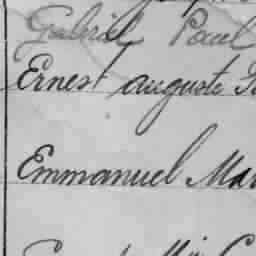 Gabriel Paul
Ernest auguste
Emmanuel